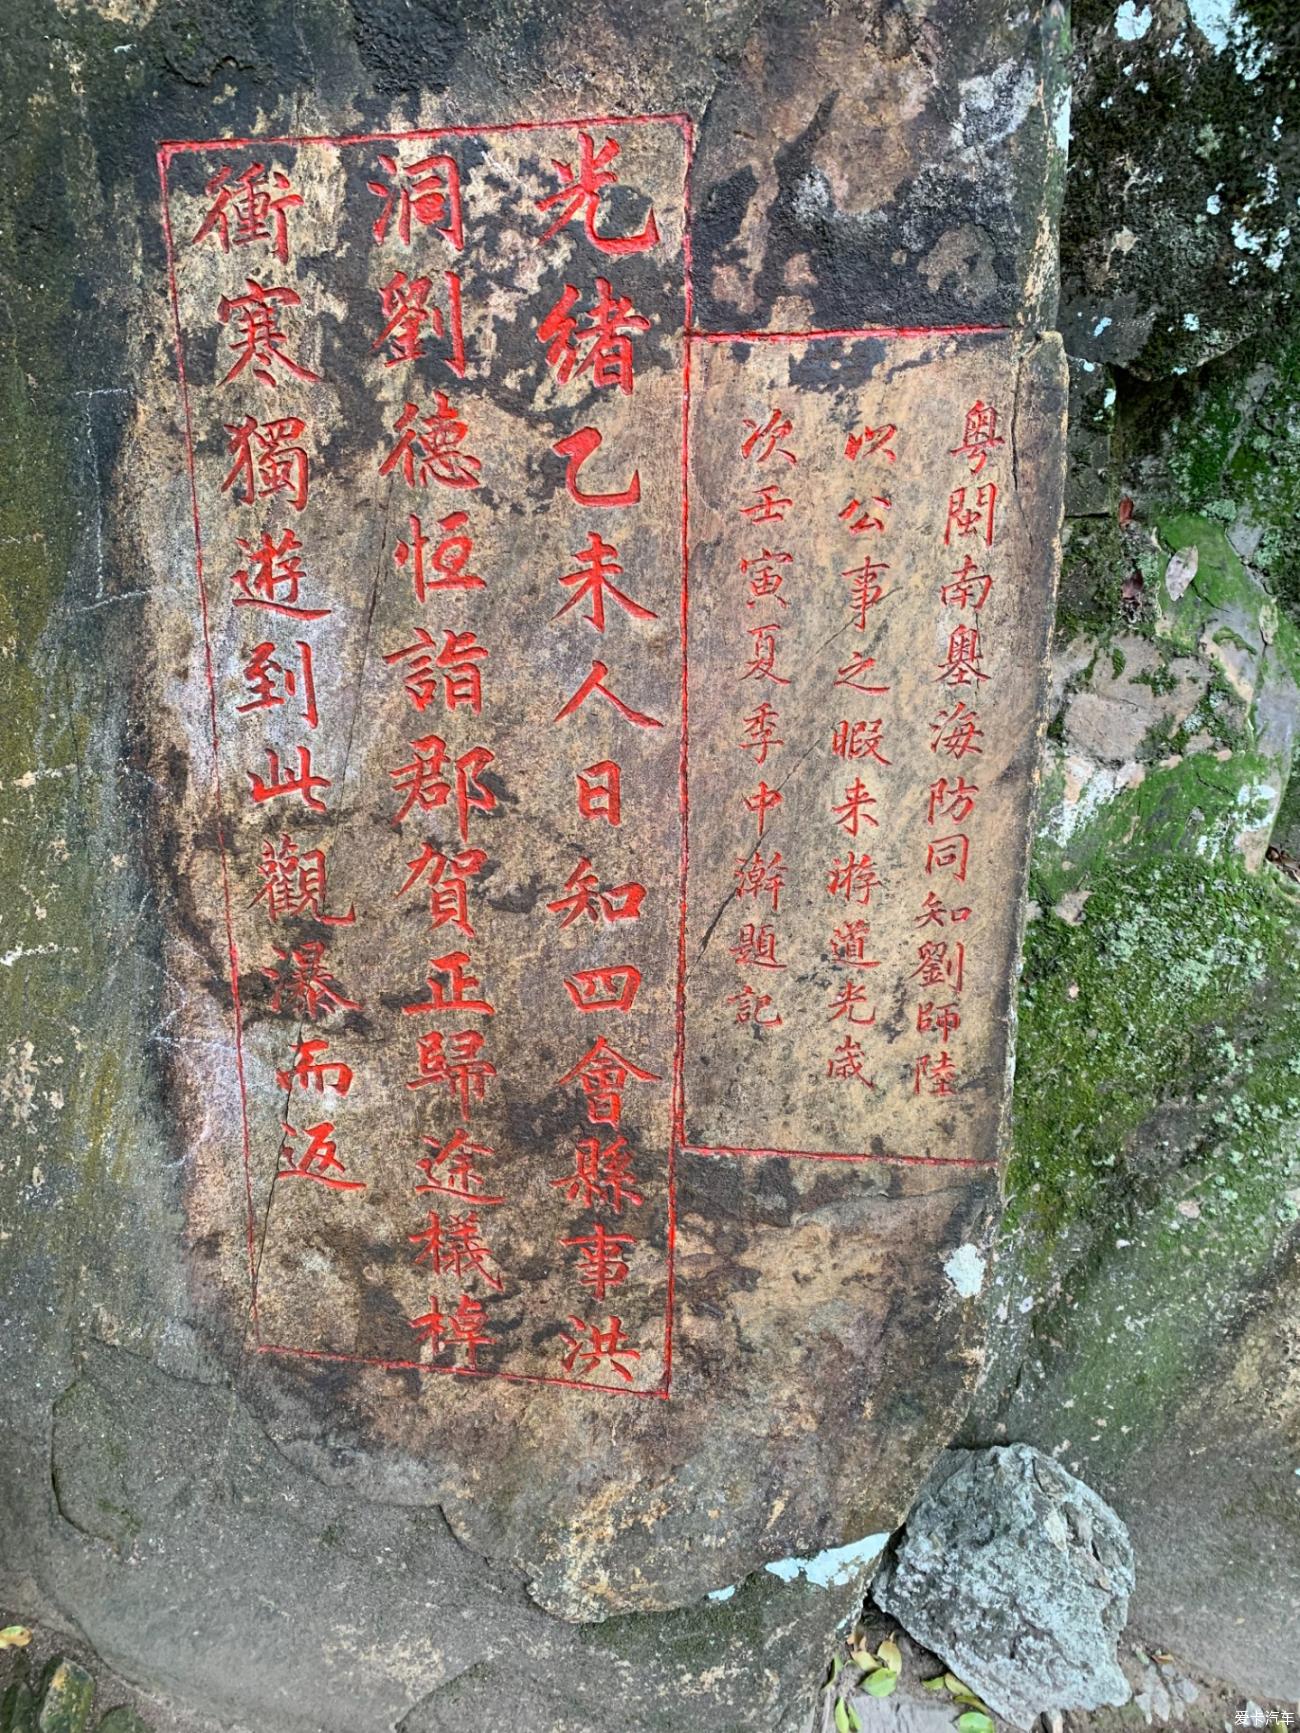 粤閩南奧墨海防同知劉師陸
以公事之暇来游道光歲
次壬寅夏季中澣題記
光緒乙未人日知四會縣事洪
洞劉德恒詣郡賀正歸途檥棹
衝寒獨遊到此觀瀑而返
爱卡汽车